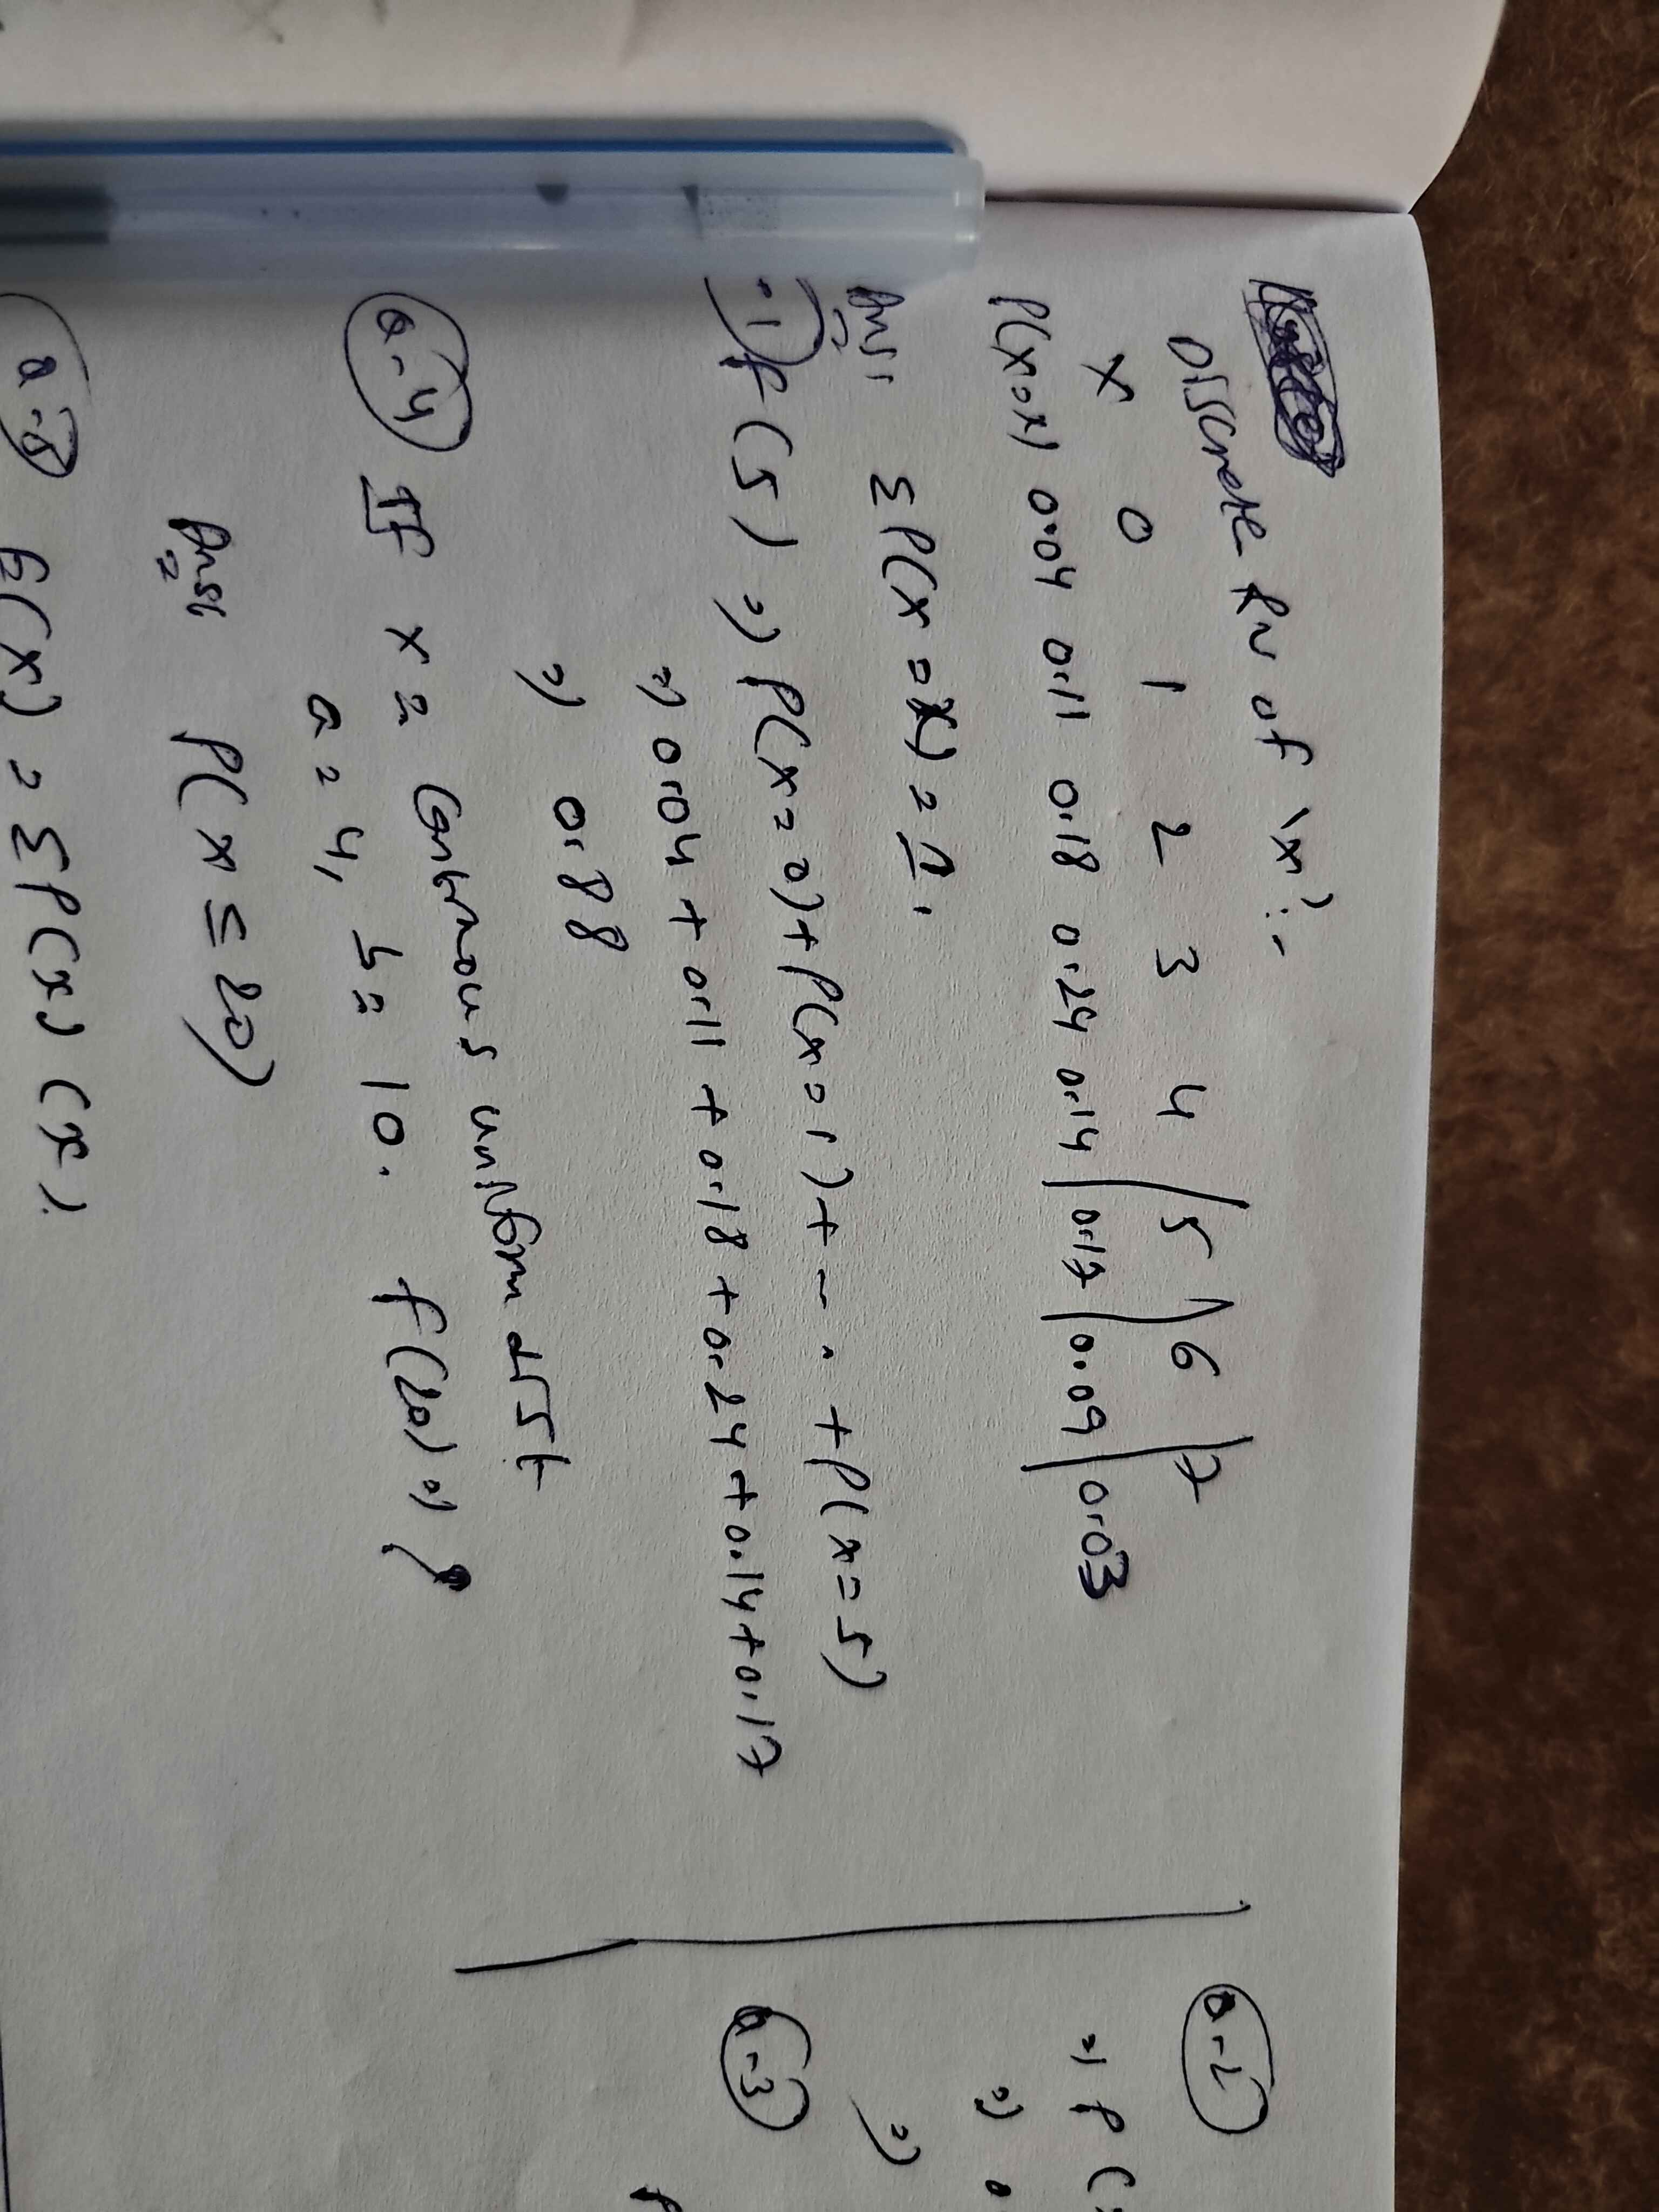 Discrete Rv of 'x':-
x 0 1 2 3 4 5 6 7
P(x=x) 0.04 0.11 0.18 0.24 0.14 0.17 0.09 0.03
Ans: Σ P(x=x) = 1.
-1 F(5) => P(x=0) + P(x=1) + ... + P(x=5)
=> 0.04 + 0.11 + 0.18 + 0.24 + 0.14 + 0.17
=> 0.88
Q-4 If x = Continuous uniform dist
a = 4, b = 10. F(20) = ?
Ans: P(x ≤ 20)
Q-5 E(x) = Σ P(x) (x).
Q-2
=> P(
=> 0
=>
Q-3